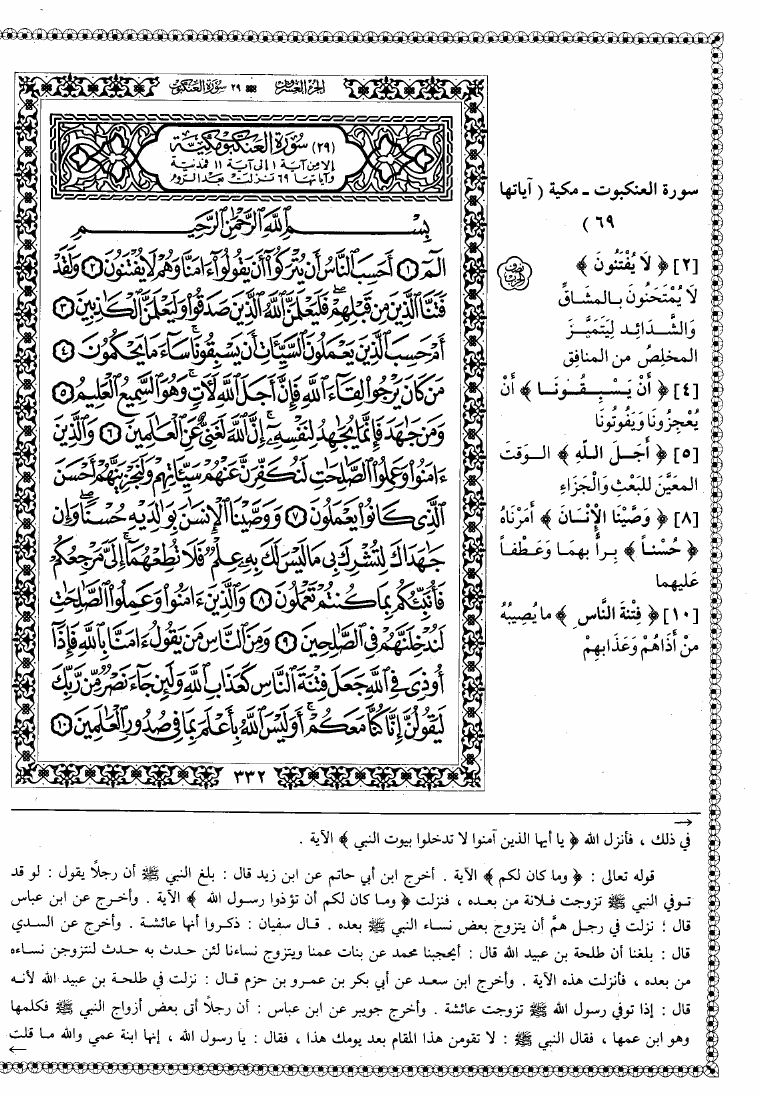 الجزء العشرون ٢٩ سورة العنكبوت
(٢٩) سورة العنكبوت مكية
إلا من آية ١ إلى آية ١١ فمدنية
وآياتها ٦٩ نزلت بعد الروم
بِسْمِ ٱللَّهِ ٱلرَّحْمَٰنِ ٱلرَّحِيمِ
الٓمٓ ١ أَحَسِبَ ٱلنَّاسُ أَن يُتْرَكُوٓا۟ أَن يَقُولُوٓا۟ ءَامَنَّا وَهُمْ لَا يُفْتَنُونَ ٢ وَلَقَدْ
فَتَنَّا ٱلَّذِينَ مِن قَبْلِهِمْ ۖ فَلَيَعْلَمَنَّ ٱللَّهُ ٱلَّذِينَ صَدَقُوا۟ وَلَيَعْلَمَنَّ ٱلْكَٰذِبِينَ ٣
أَمْ حَسِبَ ٱلَّذِينَ يَعْمَلُونَ ٱلسَّيِّـَٔاتِ أَن يَسْبِقُونَا ۚ سَآءَ مَا يَحْكُمُونَ ٤
مَن كَانَ يَرْجُوا۟ لِقَآءَ ٱللَّهِ فَإِنَّ أَجَلَ ٱللَّهِ لَءَاتٍ ۚ وَهُوَ ٱلسَّمِيعُ ٱلْعَلِيمُ ٥
وَمَن جَٰهَدَ فَإِنَّمَا يُجَٰهِدُ لِنَفْسِهِۦٓ ۚ إِنَّ ٱللَّهَ لَغَنِىٌّ عَنِ ٱلْعَٰلَمِينَ ٦ وَٱلَّذِينَ
ءَامَنُوا۟ وَعَمِلُوا۟ ٱلصَّٰلِحَٰتِ لَنُكَفِّرَنَّ عَنْهُمْ سَيِّـَٔاتِهِمْ وَلَنَجْزِيَنَّهُمْ أَحْسَنَ
ٱلَّذِى كَانُوا۟ يَعْمَلُونَ ٧ وَوَصَّيْنَا ٱلْإِنسَٰنَ بِوَٰلِدَيْهِ حُسْنًا ۖ وَإِن
جَٰهَدَاكَ لِتُشْرِكَ بِى مَا لَيْسَ لَكَ بِهِۦ عِلْمٌ فَلَا تُطِعْهُمَآ ۚ إِلَىَّ مَرْجِعُكُمْ
فَأُنَبِّئُكُم بِمَا كُنتُمْ تَعْمَلُونَ ٨ وَٱلَّذِينَ ءَامَنُوا۟ وَعَمِلُوا۟ ٱلصَّٰلِحَٰتِ
لَنُدْخِلَنَّهُمْ فِى ٱلصَّٰلِحِينَ ٩ وَمِنَ ٱلنَّاسِ مَن يَقُولُ ءَامَنَّا بِٱللَّهِ فَإِذَآ
أُوذِىَ فِى ٱللَّهِ جَعَلَ فِتْنَةَ ٱلنَّاسِ كَعَذَابِ ٱللَّهِ وَلَئِن جَآءَ نَصْرٌ مِّن رَّبِّكَ
لَيَقُولُنَّ إِنَّا كُنَّا مَعَكُمْ ۚ أَوَلَيْسَ ٱللَّهُ بِأَعْلَمَ بِمَا فِى صُدُورِ ٱلْعَٰلَمِينَ ١٠
٣٣٢
سورة العنكبوت ـ مكية ( آياتها
٦٩ )
[٢] ﴿ لَا يُفْتَنُونَ ﴾
لَا يُمْتَحَنُونَ بـالمشَاقِّ
وَالشَّدائد لِيَتَمَيَّزَ
المخلصُ من المنافِق
[٤] ﴿ أَنْ يَسْبِقُونَا ﴾ أَنْ
يُعْجِزُونَا وَيَفُوتُونَا
[٥] ﴿ أَجَلَ اللهِ ﴾ الوَقتَ
المعَيَّنَ للبَعْثِ وَالْجَزَاءِ
[٨] ﴿ وَصَّيْنَا الإِنْسَانَ ﴾ أَمَرْنَاهُ
﴿ حُسْناً ﴾ بِرًّا بِهِمَا وَعَطْفاً
عَليهما
[١٠] ﴿ فِتْنَةَ النَّاسِ ﴾ ما يُصِيبُهُ
مِنْ أَذَاهُمْ وَعَذَابِهِمْ
في ذلك ، فأنزل الله ﴿ يا أيها الذين آمنوا لا تدخلوا بيوت النبي ﴾ الآية .
قوله تعالى : ﴿ وما كان لكم ﴾ الآية . أخرج ابن أبي حاتم عن ابن زيد قال : بلغ النبي ﷺ أن رجلاً يقول : لو قد
توفي النبي ﷺ تزوجت فلانة من بعده ، فنزلت ﴿ وما كان لكم أن تؤذوا رسول الله ﴾ الآية . وأخرج عن ابن عباس
قال ؛ نزلت في رجل همَّ أن يتزوج بعض نساء النبي ﷺ بعده . قال سفيان : ذكروا أنها عائشة . وأخرج عن السدي
قال : بلغنا أن طلحة بن عبيد الله قال : أيحجبنا محمد عن بنات عمنا ويتزوج نساءنا لئن حدث به حدث لنتزوجن نساءه
من بعده ، فأنزلت هذه الآية . وأخرج ابن سعد عن أبي بكر بن عمرو بن حزم قال : نزلت في طلحة بن عبيد الله لأنه
قال : إذا توفي رسول الله ﷺ تزوجت عائشة . وأخرج جويبر عن ابن عباس : أن رجلاً أتى بعض أزواج النبي ﷺ فكلمها
وهو ابن عمها ، فقال النبي ﷺ : لا تقومن هذا المقام بعد يومك هذا ، فقال : يا رسول الله ، إنها ابنة عمي والله ما قلت